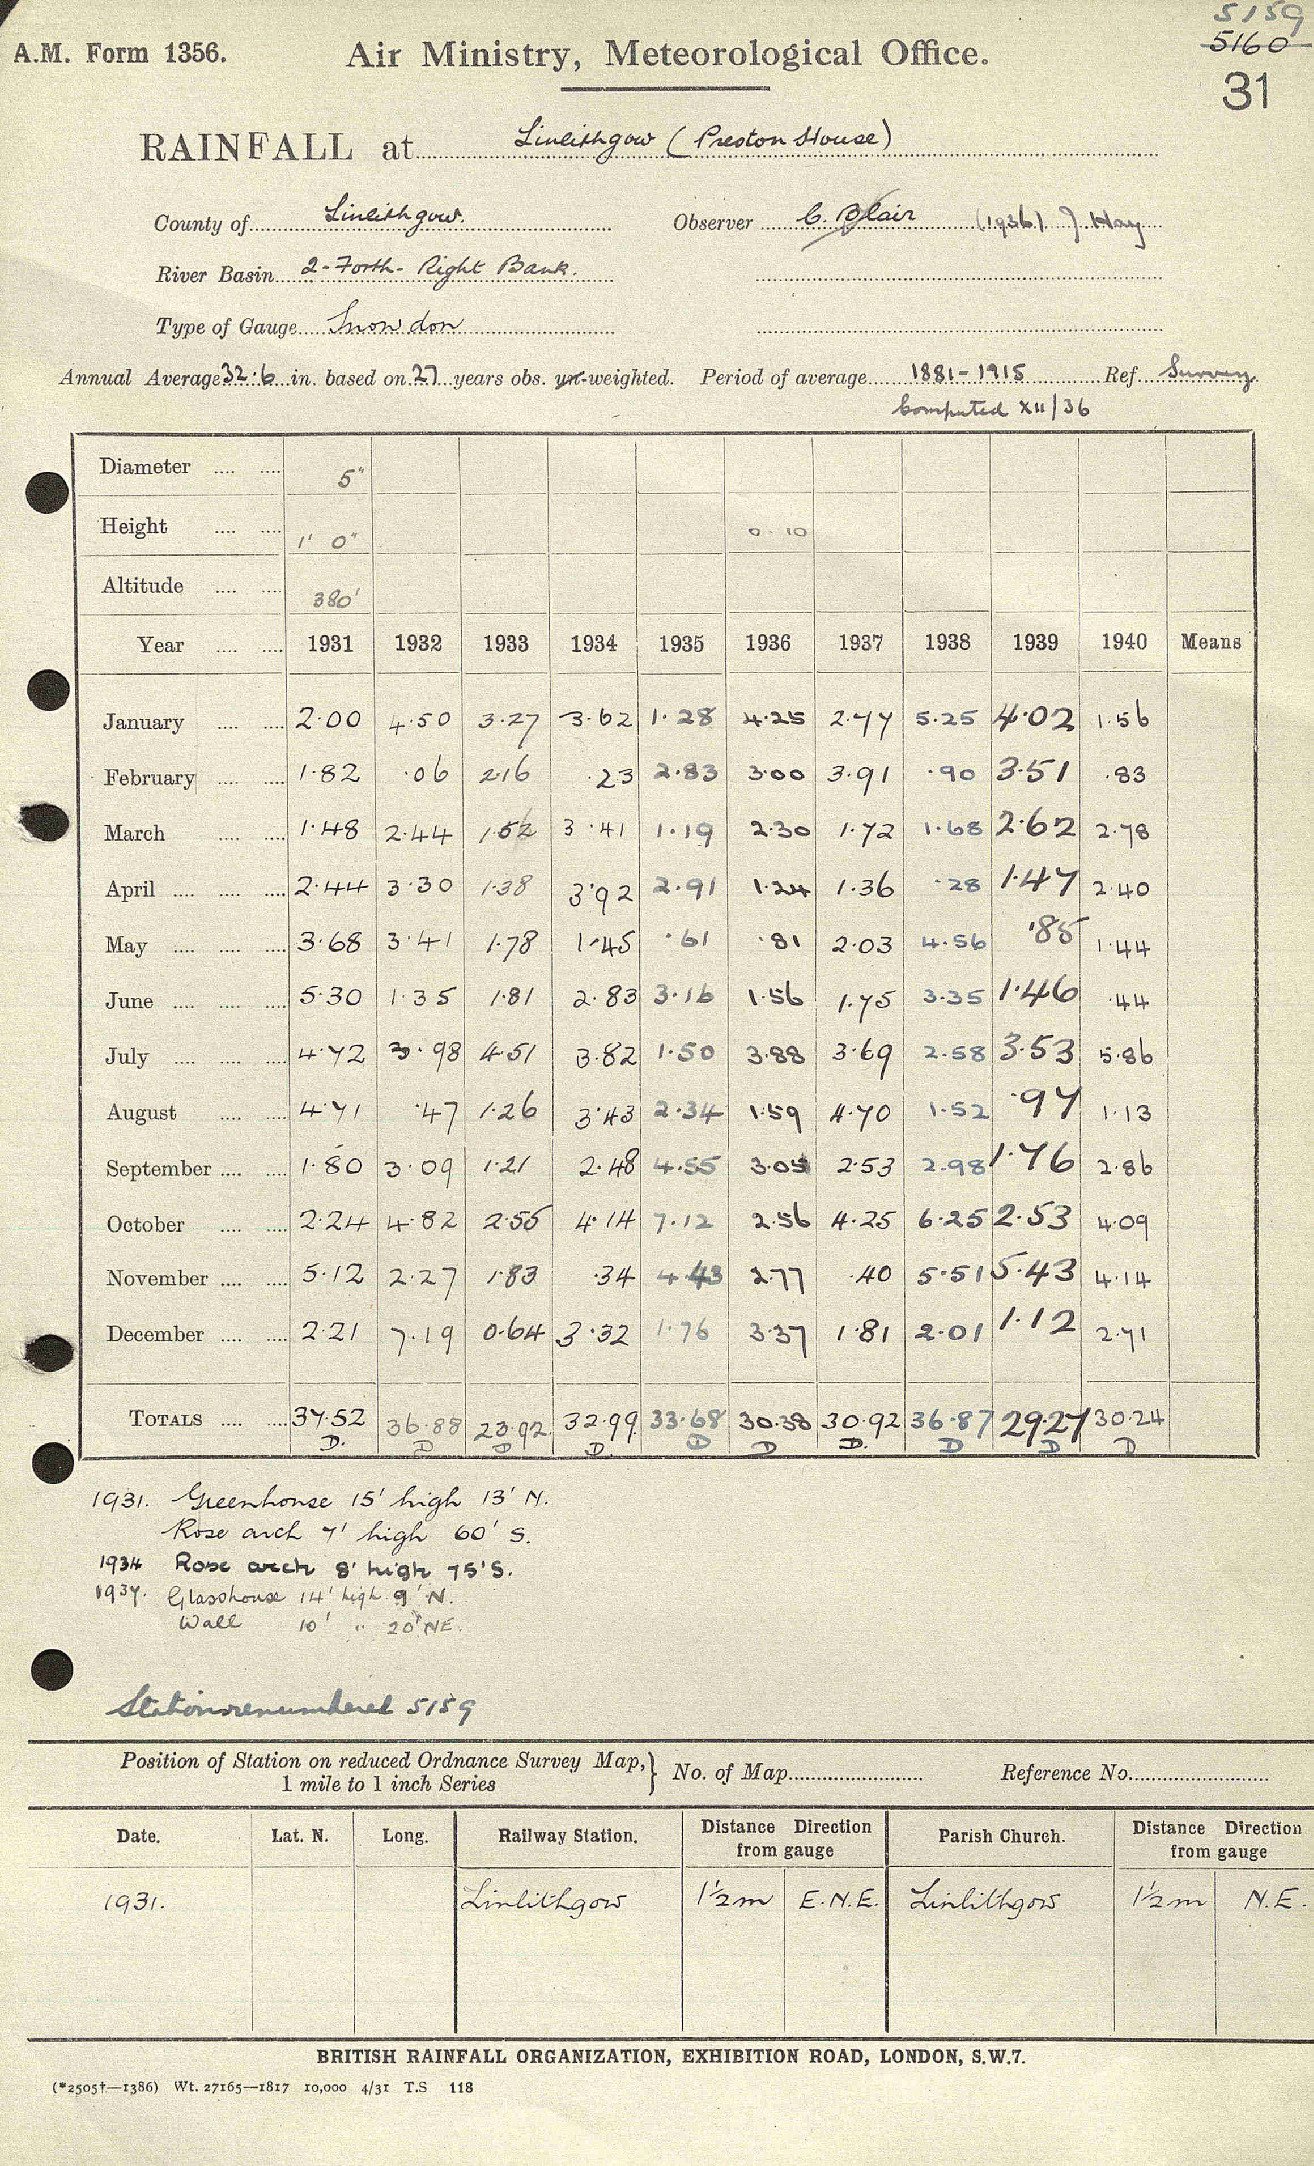 5159
5160
31
A.M. Form 1356.
Air Ministry, Meteorological Office.
RAINFALL at Linlithgow (Preston House)
County of Linlithgow. Observer C. Blair (1936) J. Hay
River Basin 2-Forth- Right Bank.
Type of Gauge Snowdon
Annual Average 32.6 in. based on 27 years obs. un-weighted. Period of average 1881-1915 Ref. Survey
Computed XII/36
Diameter 5"
Height 1' 0" 0 10
Altitude 380'
Year 1931 1932 1933 1934 1935 1936 1937 1938 1939 1940 Means
January 2.00 4.50 3.27 3.62 1.28 4.25 2.77 5.25 4.02 1.56
February 1.82 .06 2.16 .23 2.83 3.00 3.91 .90 3.51 .83
March 1.48 2.44 1.52 3.41 1.19 2.30 1.72 1.68 2.62 2.78
April 2.44 3.30 1.38 3.92 2.91 1.24 1.36 .28 1.47 2.40
May 3.68 3.41 1.78 1.45 .61 .81 2.03 4.56 .85 1.44
June 5.30 1.35 1.81 2.83 3.16 1.56 1.75 3.35 1.46 .44
July 4.72 3.98 4.51 3.82 1.50 3.88 3.69 2.58 3.53 5.86
August 4.71 .47 1.26 3.43 2.34 1.59 4.70 1.52 .97 1.13
September 1.80 3.09 1.21 2.48 4.55 3.05 2.53 2.98 1.76 2.86
October 2.24 4.82 2.55 4.14 7.12 2.56 4.25 6.25 2.53 4.09
November 5.12 2.27 1.83 .34 4.43 2.77 .40 5.51 5.43 4.14
December 2.21 7.19 0.64 3.32 1.76 3.37 1.81 2.01 1.12 2.71
TOTALS 37.52 36.88 23.92 32.99 33.68 30.38 30.92 36.87 29.27 30.24
D. D D D. D D D. D D D
1931. Greenhouse 15' high 13' N.
Rose arch 7' high 60' S.
1934 Rose arch 8' high 75' S.
1937. Glasshouse 14' high 9' N.
Wall 10' " 20' NE.
Station renumbered 5159
Position of Station on reduced Ordnance Survey Map, 1 mile to 1 inch Series } No. of Map Reference No.
Date. Lat. N. Long. Railway Station. Distance Direction from gauge Parish Church. Distance Direction from gauge
1931. Linlithgow 1½m E.N.E. Linlithgow 1½m N.E.
BRITISH RAINFALL ORGANIZATION, EXHIBITION ROAD, LONDON, S.W.7.
(*2505†—1386) Wt. 27165—1817 10,000 4/31 T.S 118